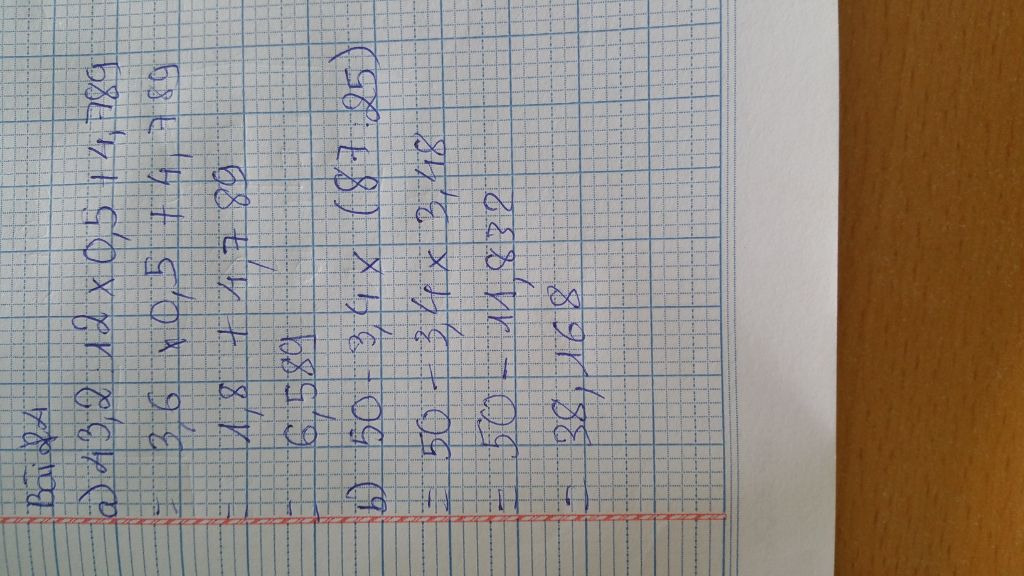 Bài 24
a) 43,2 12 x 0,5 + 4,789
= 3,6 x 0,5 + 4,789
= 1,8 + 4,789
= 6,589
b) 50 - 3,4 x (87 : 25)
= 50 - 3,4 x 3,48
= 50 - 11,832
= 38,168